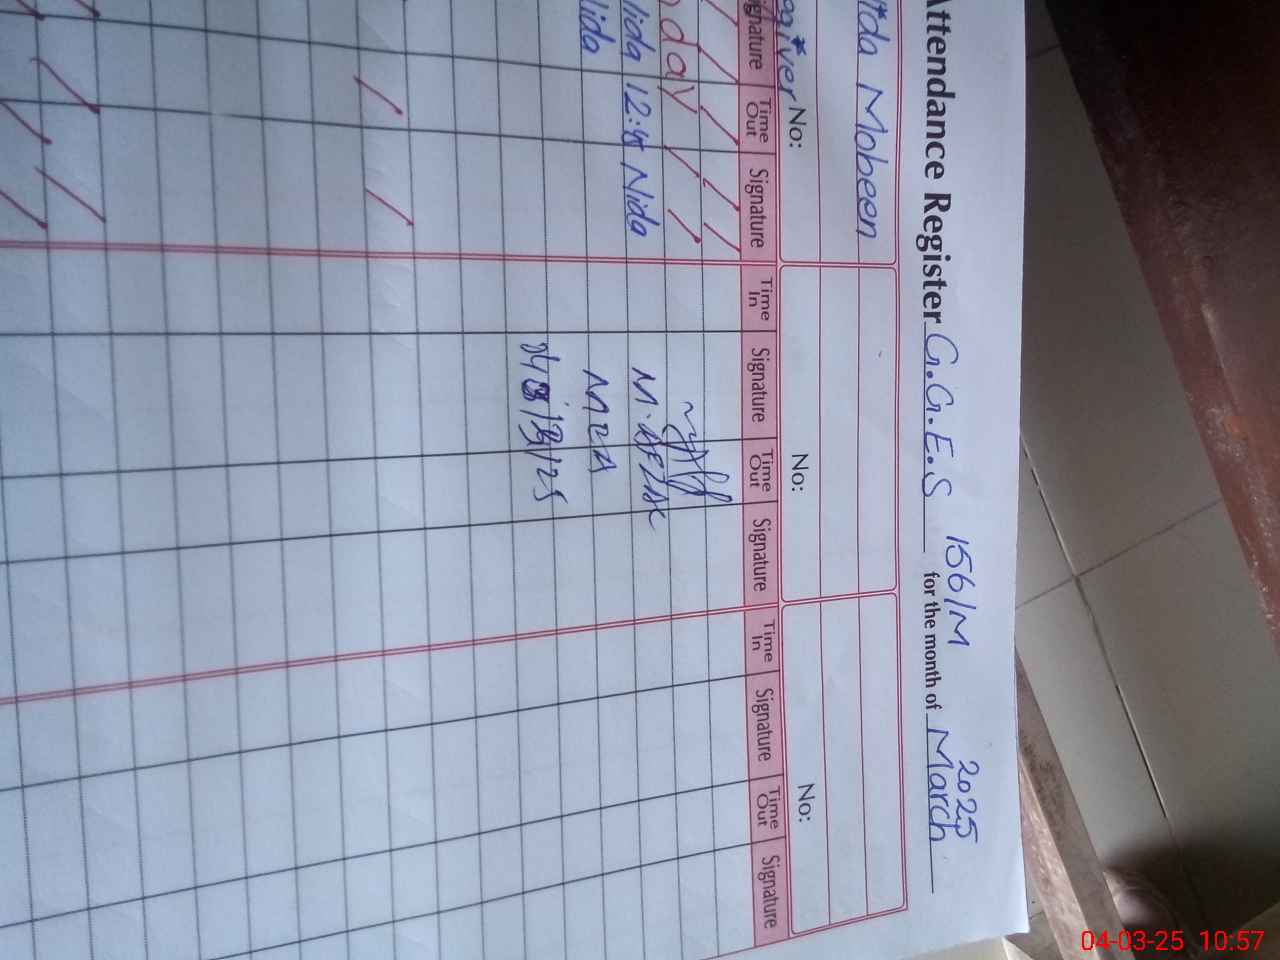 Attendance Register G.G.E.S 156/M for the month of March 2025
ida Mobeen
No: No: No:
giver
gnature Time Out Signature Time In Signature Time Out Signature Time In Signature Time Out Signature
nday
lida 12:45 Nida
lida
M.
04-03-25 10:57